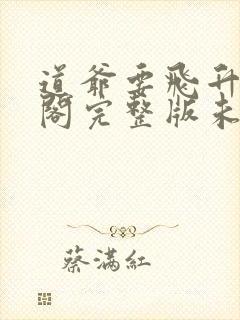 道爷要飛升
閣完整版未
蔡滿紅